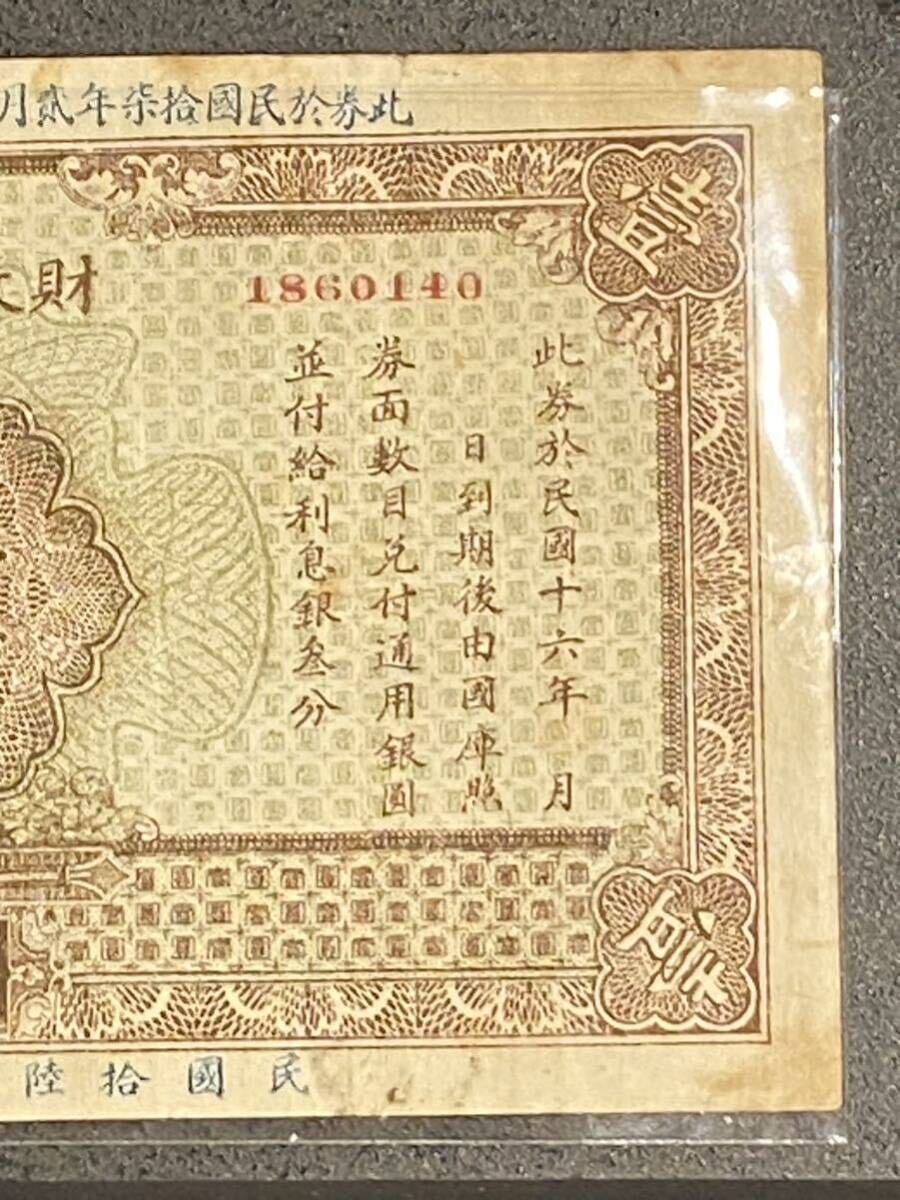 此券於民國拾柒年貳月
財
1860140
此券於民國十六年 月
日到期後由國庫照
券面數目兌付通用銀圓
並付給利息銀叁分
民國拾陸